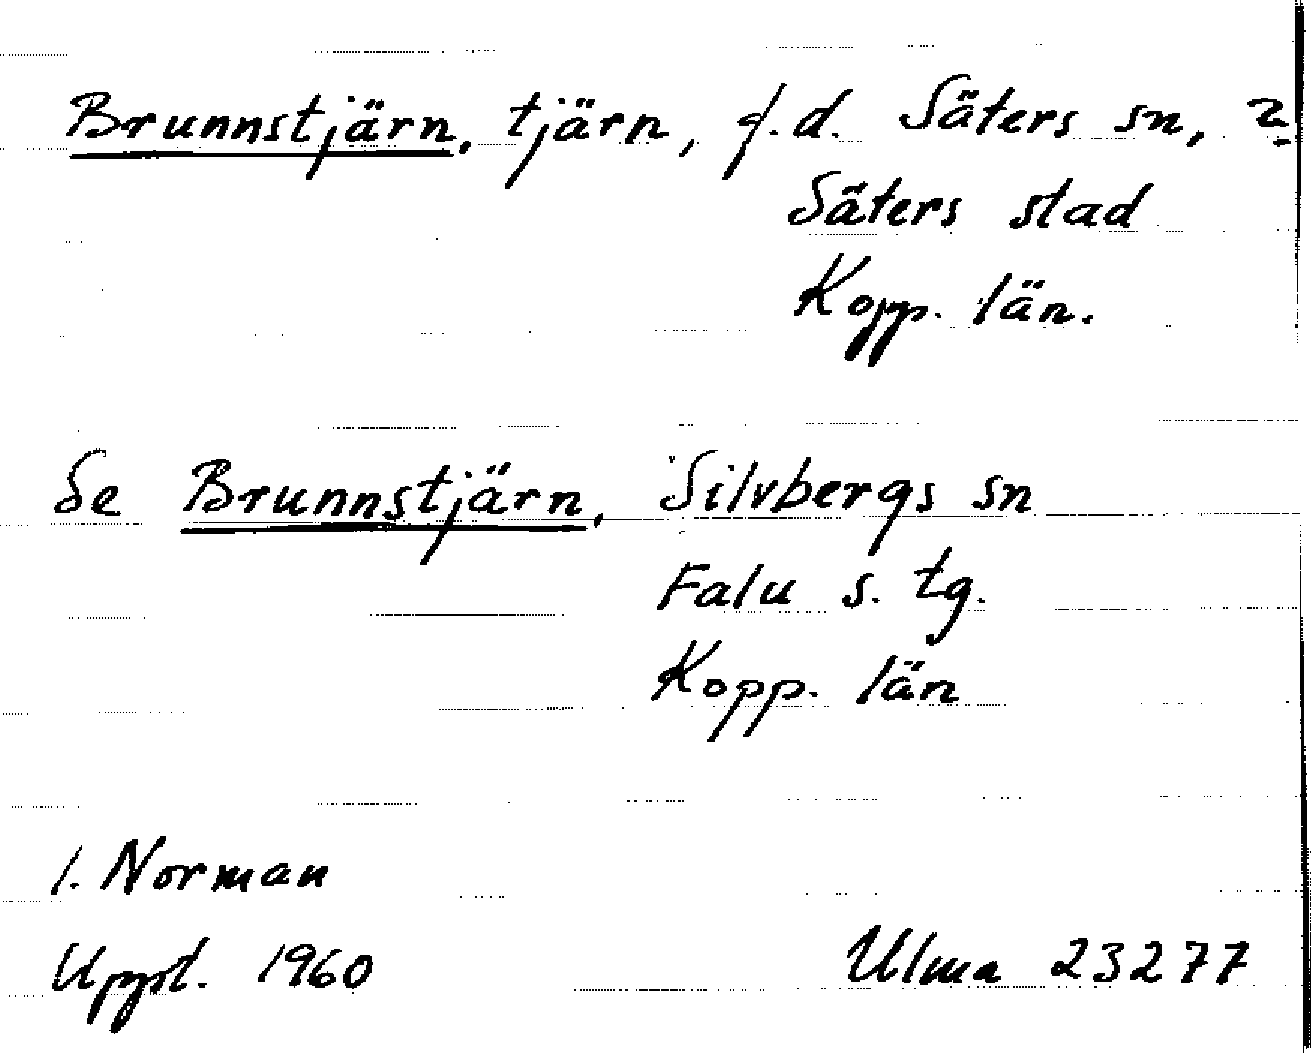 Brunnstjärn, tjärn, f.d. Säters sn, 2
Säters stad
Kopp. län.
Se Brunnstjärn, Silvbergs sn
Falu s. tg.
Kopp. län
I. Norman
Uppt. 1960 Ulma 23277